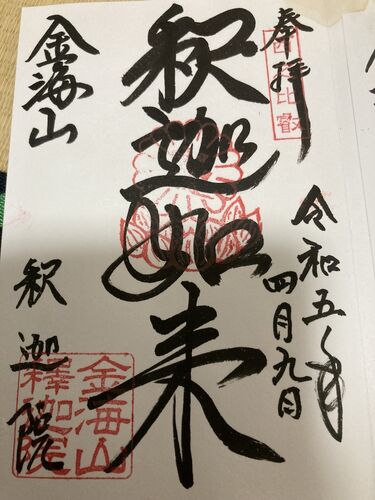 奉拝
西比叡
令和五年
四月九日
釈迦如来
金海山
釈迦院
金海山
釋迦院